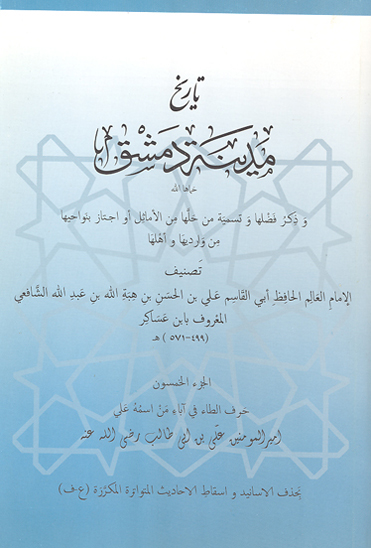 تاريخ
مدينة دمشق
حماها الله
و ذكرُ فَضْلِها وَ تسمية من حلَّها مِن الأماثِل أو اجتاز بنواحيها
مِن وَارِديها و أهْلِها
تَصنيف
الإمامِ العَالِم الحَافِظِ أبي القَاسِم عَلي بن الحَسَن بنِ هِبَة الله بن عَبدِ الله الشَّافعي
المعْرُوف بابن عَسَاكِر
(٤٩٩-٥٧١) هـ
الجزء الخمسون
حَرف الطاء في آبَاءِ مَنْ اسمُهُ عَلي
اميرالمومنين علّي بن ابی طالب رضی الله عنه
بحَذف الاسانيد و اسقاطِ الاحاديث المتواترة المكرّرَة (ع-ف)